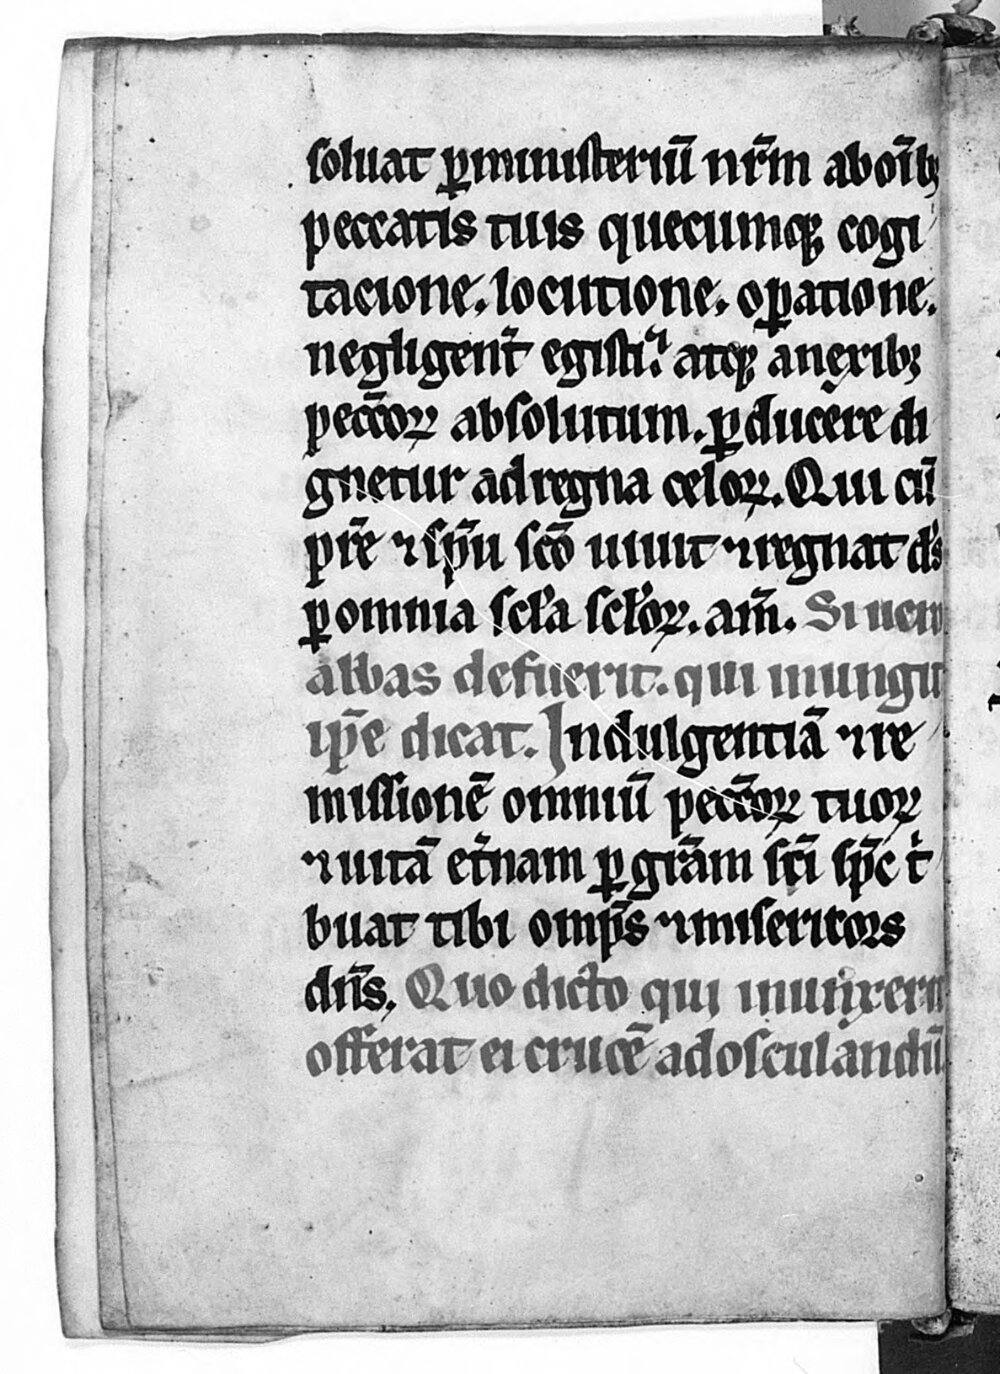 soluat ꝑministeriū nr̄m ab oīb;
peccatis tuis quecumq; cogi
tacione. locutione. oꝑatione.
negligent̄ egisti. atq; a nexib;
pecc̄oꝝ absolutum. ꝑducere di
gnetur ad regna celoꝝ. Qui cū
pr̄e ⁊ sp̄u sc̄o uiuit ⁊ regnat ds̄
ꝑ omnia scl̄a scl̄oꝝ. am̄. Si uero
abbas defuerit. qui inungit
ip̄e dicat. Indulgentiā ⁊ re
missionē omniū pecc̄oꝝ tuoꝝ
⁊ uitā et̄nam ꝑ gr̄am sc̄i sp̄c t'
buat tibi omp̄s ⁊ misericors
dn̄s. Quo dicto qui inunxerit
offerat ei crucē ad osculandū